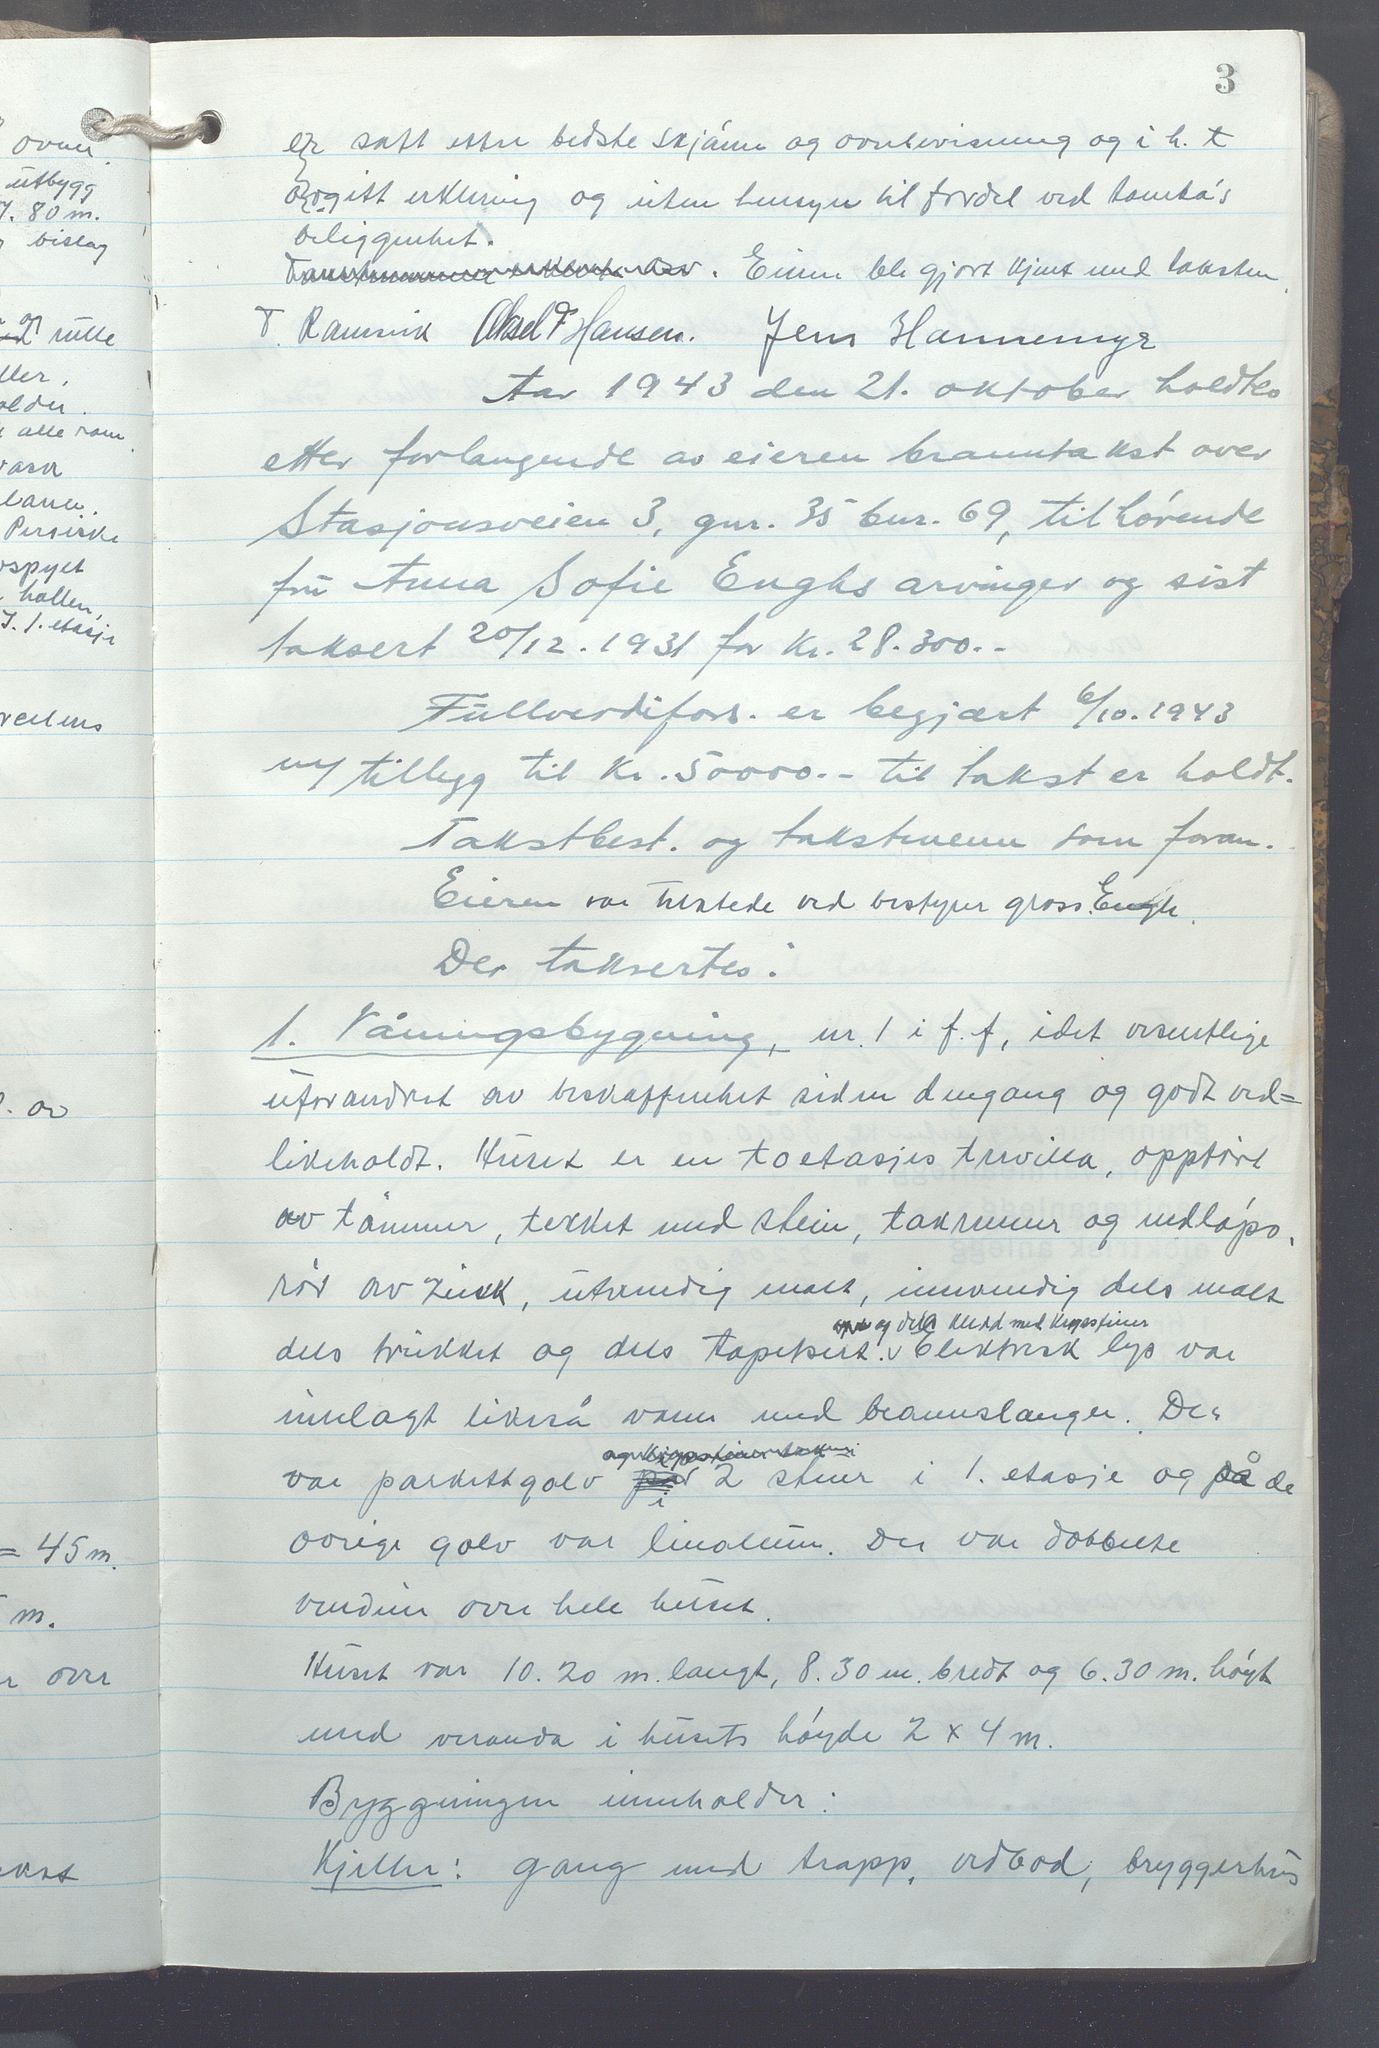 3
er satt etter bedste skjønn og overbevisning og i h. t
avgitt erklæring og uten hensyn til fordel ved tomta's
beliggenhet.
Eieren ble gjort kjent med taksten.
T. Ramsvik Aksel F Hansen. Jens Hannemyr
Aar 1943 den 21. oktober holdtes
etter forlangende av eieren branntakst over
Stasjonsveien 3, gnr. 35 bnr. 69, tilhørende
fru Anna Sofie Enghs arvinger og sist
taksert 20/12. 1931 for Kr. 28.300.-
Fullverdifors. er begjært 6/10. 1943
m/ tillegg til Kr. 50000.- til takst er holdt.
Takstbest. og takstmenn som foran.
Eieren var tilstede ved bestyrer gross. Engh.
Der taksertes:
1. Våningsbygning, nr. 1 i f. f, i det vesentlige
uforandret av beskaffenhet siden dengang og godt ved=
likeholdt. Huset er en toetasjes trevilla, oppført
av tømmer, tekket med stein, takrenner og nedløps
rør av zink, utvendig malt, innvendig dels malt
og dels kledd med kryssfiner
dels trukket og dels tapetsert. v Elektrisk lys var
innlagt likeså vann med brannslanger. Der
var parkettgolv i 2 stuer i 1. etasje og på de
øvrige golv var linoleum. Der var dobbelte
vinduer over hele huset.
Huset var 10.20 m. langt, 8.30 m. bredt og 6.30 m. høyt
med veranda i husets høyde 2 x 4 m.
Byggningen inneholder:
Kjeller: gang med trapp, vedbod, bryggerhus
ovner.
utbygg
7. 80 m.
bislag
og rulle
alle rom
vask
Persiske
hallen,
1. etasje
av
= 45 m.
m.
over